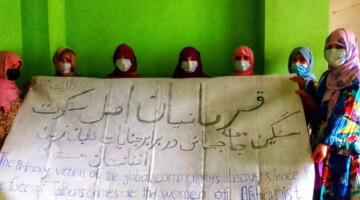 قربانیان اصلی سکوت
سنگین جامعه جهانی در برابر جنایات طالبان زنان
افغانستان
The Primary victims of the global community's heavy silence in
face of Taliban's crimes are the women of Afghanist